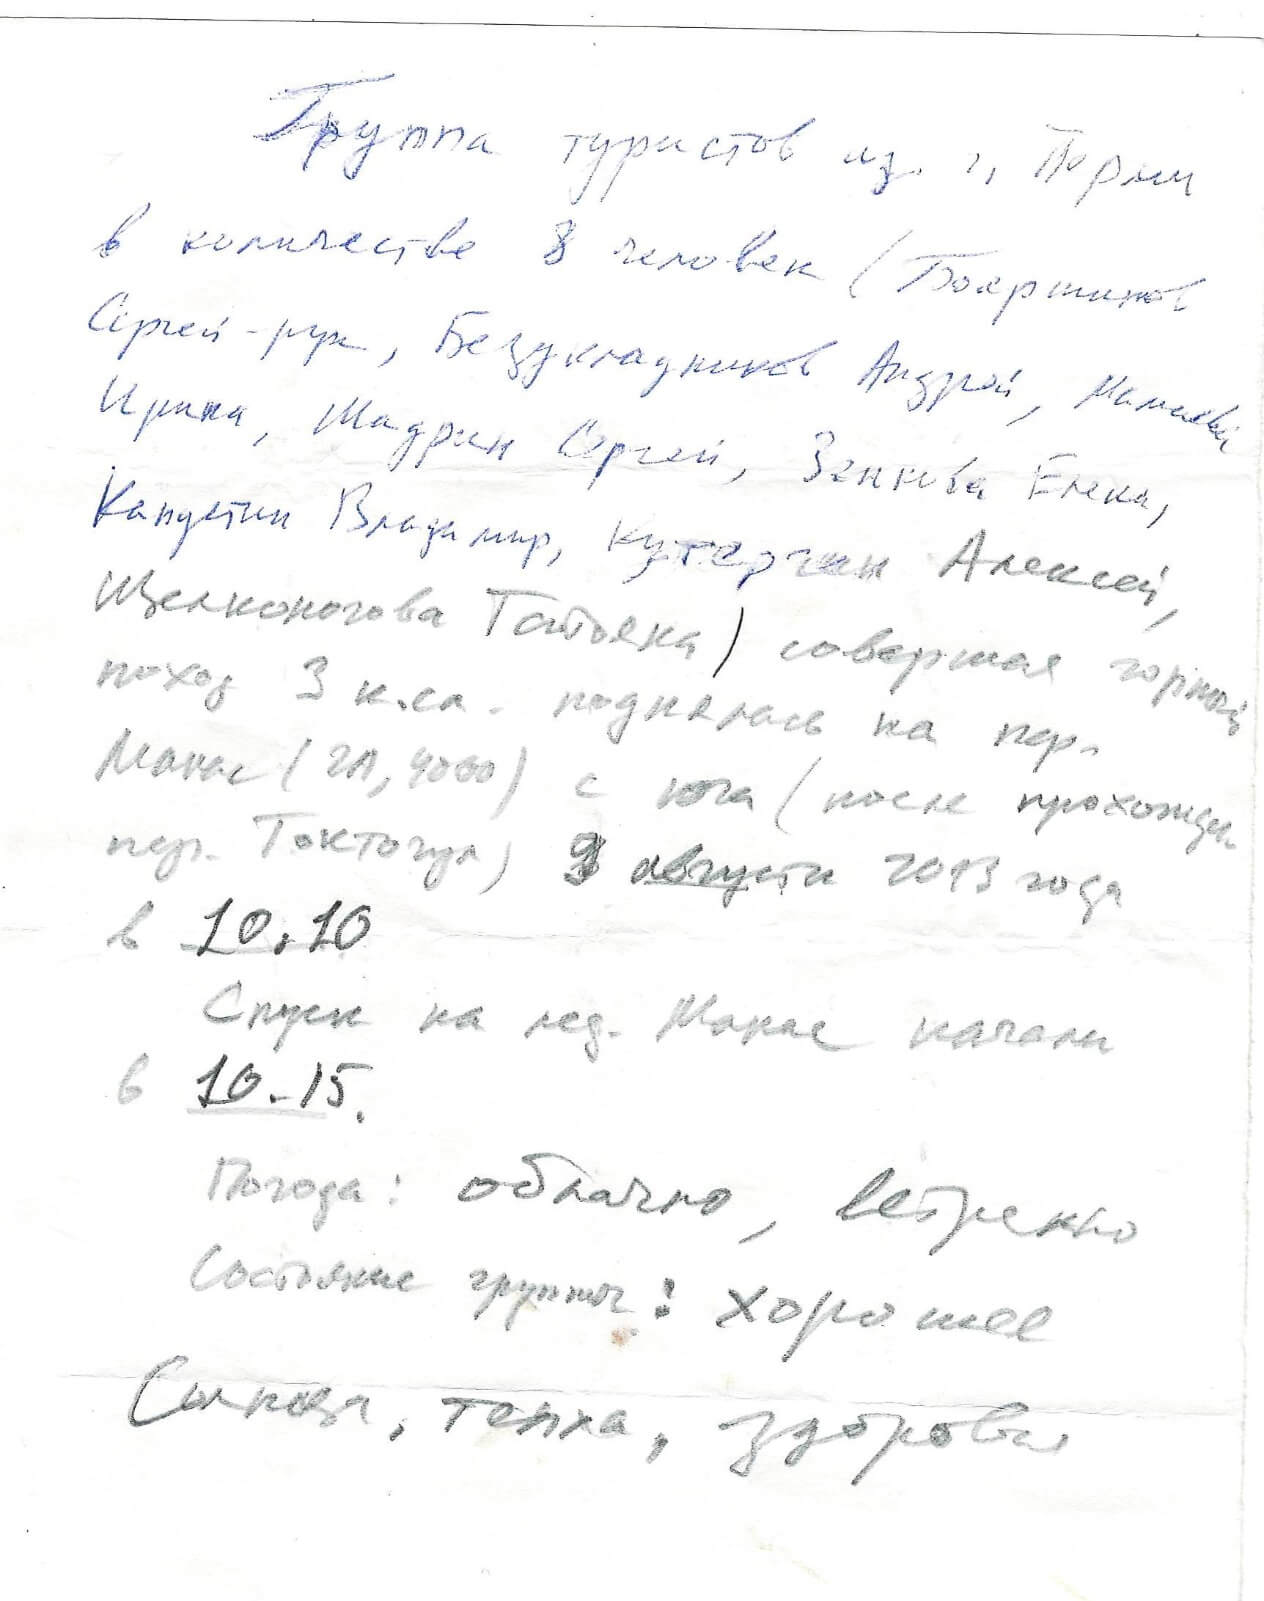 Группа туристов из г. Перми
в количестве 8 человек (Бояршинов
Сергей - рук, Безукладников Андрей,
Ирина, Шадрин Сергей, Зенкова Елена,
Капустин Владимир, Кутергин Алексей,
Щелконогова Татьяна) совершая горный
поход 3 к.сл. поднялась на пер.
Манас (2А, 4000) с юга (после прохожден.
пер. Токтогул) августа 2013 года
в 10.10
Спуск на лед. Манас начали
в 10-15.
Погода: облачно, ветренно
Состояние группы: хорошее
Солнца, тепла, здоровья